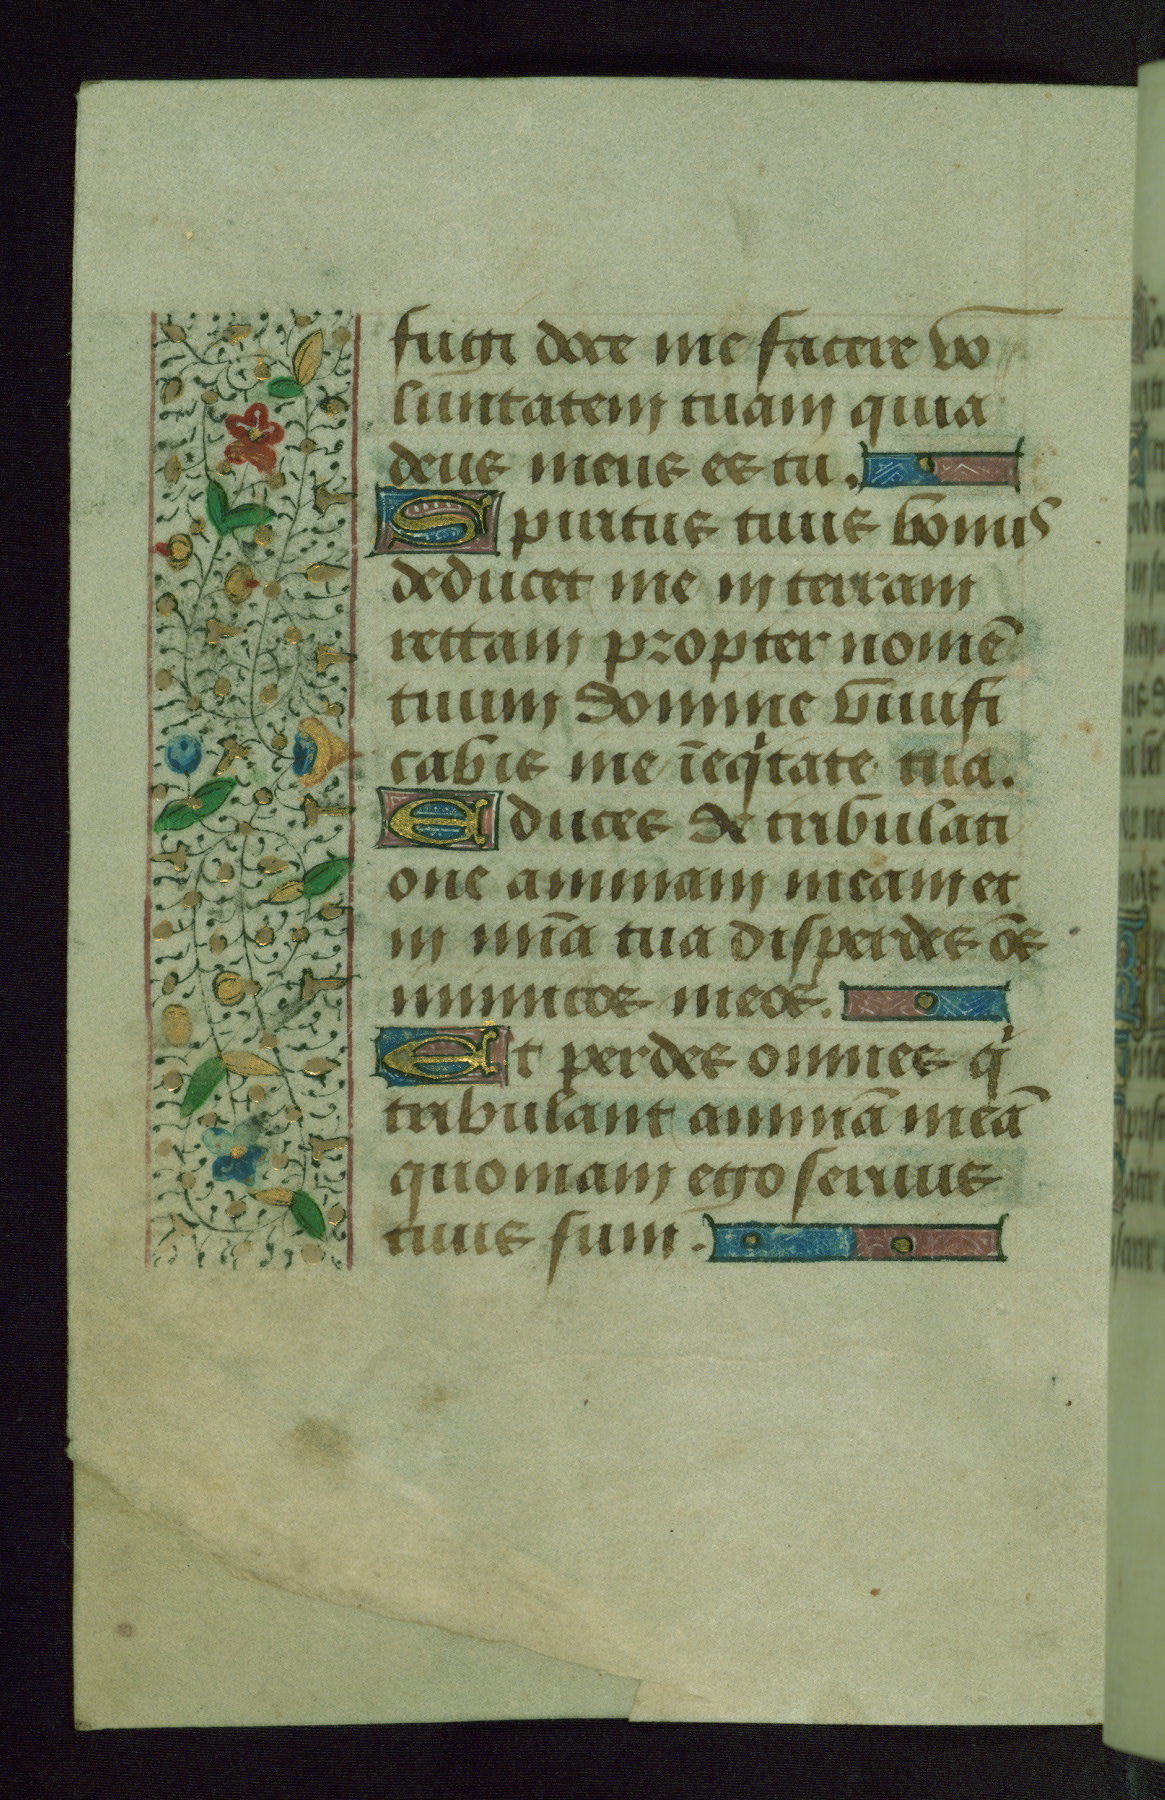 fugi doce me facere vo
luntatem tuam quia
deus meus es tu.
Spiritus tuus bonus
deducet me in terram
rectam propter nomē
tuum domine viuifi
cabis me ī eqͥtate tua.
Educes de tribulati
one animam meam et
in mīa tua disperdes ōs
inimicos meos.
Et perdes omnes qͥ
tribulant animā meā
quoniam ego seruus
tuus sum.